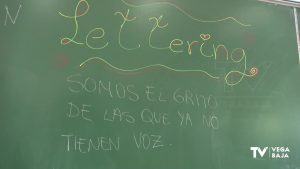 N
Lettering
SOMOS EL GRITO
DE LAS QUE YA NO
TIENEN VOZ.
TV VEGA
BAJA